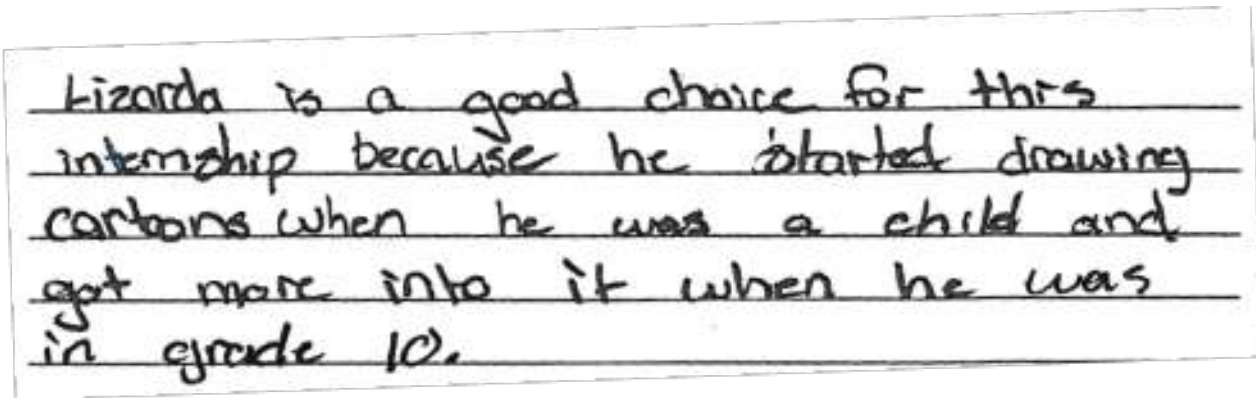 Lizarda is a good choice for this
internship because he started drawing
cartoons when he was a child and
got more into it when he was
in grade 10.